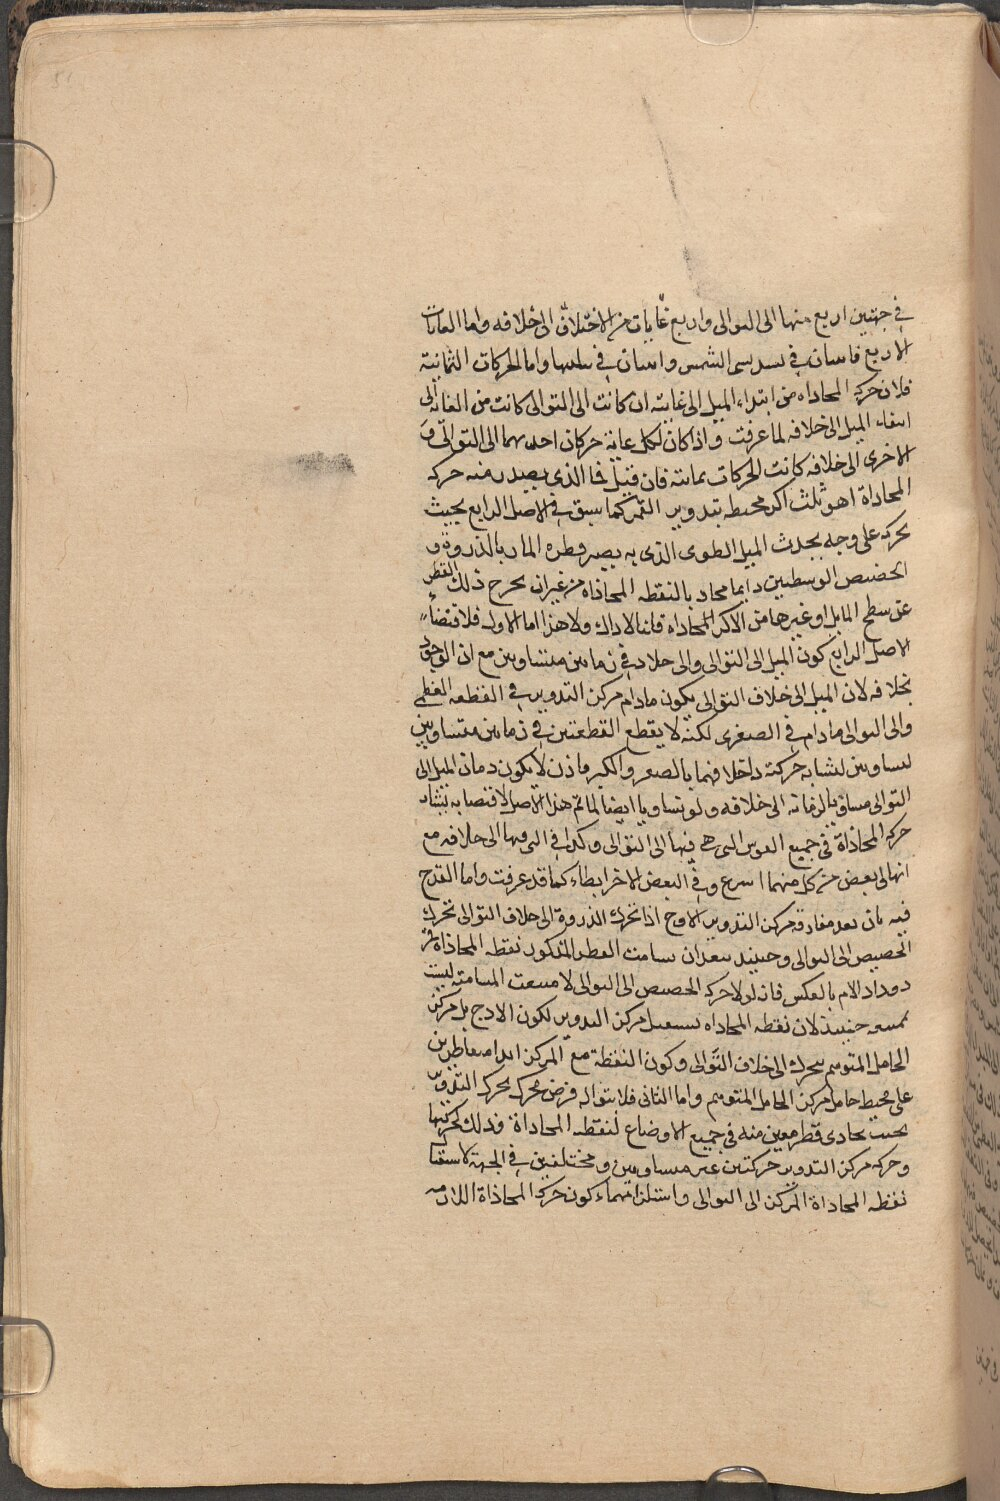 في جهتين اربع منها الى التوالى واربع غايات من الاختلاف الى خلافه واما الغايات
الاربع فاثنتان في تسديسى الشمس واثنتان في تثليثيها واما الحركات الثمانية
فلان حركة المحاذاه من ابتداء الميل الى غايته ان كانت الى التوالى كانت من الغاية الى
انتفاء الميل الى خلافه لما عرفت واذا كان لكل غاية حركتان احديهما الى التوالى و
الاخرى الى خلافه كانت الحركات ثمانية فان قيل فما الذى يصدر منه حركة
المحاذاة اهو ثلث اكر محيطة بتدوير القمر كما سبق في الاصل الرابع بحيث
يحركه على وجه يحدث الميل الطولى الذى به يصير قطره المار بالذروة و
الحضيض الوسطيين دايما محاذيا لنقطة المحاذاة من غير ان يخرج ذلك القطر
عن سطح المايل او غيرها من الاكر المحاذاه قلنا لا ذاك ولا هذا اما الاول فلاقتضاء
الاصل الرابع كون الميل الى التوالى والى خلافه في زمانين متساويين مع ان الوجود
بخلافه لان الميل الى خلاف التوالى يكون مادام مركز التدوير في القطعة العظمى
والى التوالى مادام في الصغرى لكنه لا يقطع القطعتين في زمانين متساويين
لتساويين لتشابه حركته واختلافهما بالصغر والكبر فاذن لا يكون زمان الميل الى
التوالى مساويا لزمانه الى خلافه ولو تساويا ايضا لما تم هذا الاصل لاقتضايه تشابه
حركة المحاذاة في جميع القوس التى هى فيها الى التوالى وكذا في التى فيها الى خلافه مع
انها في بعض من كل منهما اسرع وفي البعض الاخر ابطاء كما قد عرفت واما القدح
فيه بان بعد مفارقة مركز التدوير الاوج اذا تحرك الذروة الى خلاف التوالى تحرك
الحضيض الى التوالى وحينئذ يتعذر ان يسامت القطر المذكور نقطة المحاذاة
بالعكس فانه لولا حركة الحضيض الى التوالى لامتنعت المسامتة ليست
حينئذ لان نقطة المحاذاه مركز التدوير لكون الاوج بل مركز
الحامل المتوهم يتحرك الى خلاف التوالى وكون النقطة مع المركز ابدا متناظرين
على محيط حامل مركز الحامل المتوهم واما الثانى فلانتوال فرض محرك يحرك التدوير
بحيث يحاذى قطر معين منه في جميع الاوضاع لنقطة المحاذاة وذلك لحركتها
وحركة مركز التدوير حركتين غير متساويتين ومختلفتين في الجهة
نقطة المحاذاة المركز الى التوالى واستلزامهما كون حركة المحاذاة اللازمة